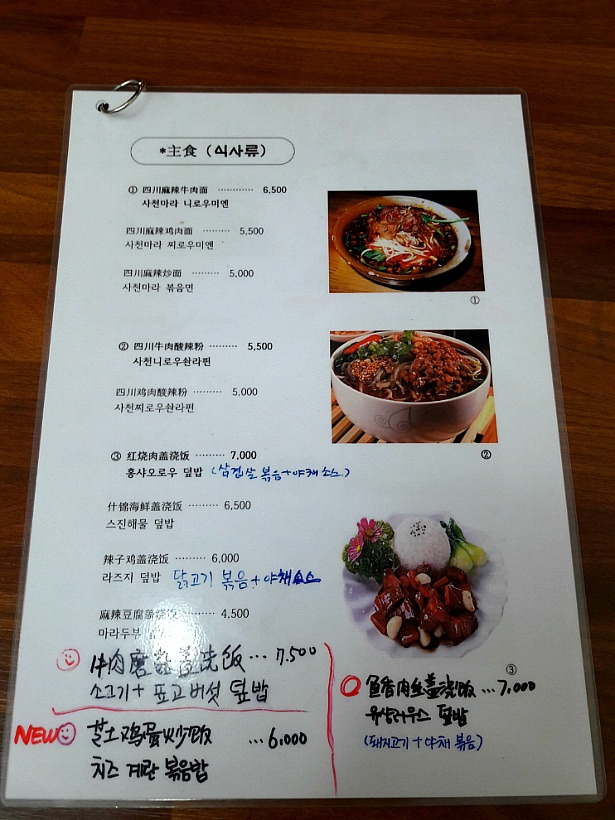 *主食 (식사류)
① 四川麻辣牛肉面 ............ 6,500
사천마라 니로우미엔
四川麻辣鸡肉面 ......... 5,500
사천마라 찌로우미엔
四川麻辣炒面 ......... 5,000
사천마라 볶음면
①
② 四川牛肉酸辣粉 ......... 5,500
사천니로우쏸라펀
四川鸡肉酸辣粉 ......... 5,000
사천찌로우쏸라펀
②
③ 红烧肉盖浇饭 ......... 7,000
홍샤오로우 덮밥 (삼겹살 볶음+야채 소스)
什锦海鲜盖浇饭 ......... 6,500
스진해물 덮밥
辣子鸡盖浇饭 ......... 6,000
라즈지 덮밥 닭고기 볶음+야채소스
麻辣豆腐盖浇饭 ......... 4,500
마라두부
③
牛肉蘑菇盖浇饭 ... 7.500
소고기+표고버섯 덮밥
NEW 芝士鸡蛋炒饭 ... 6.000
치즈 계란 볶음밥
鱼香肉丝盖浇饭 ... 7,000
위샹러우스 덮밥
(돼지고기+야채 볶음)